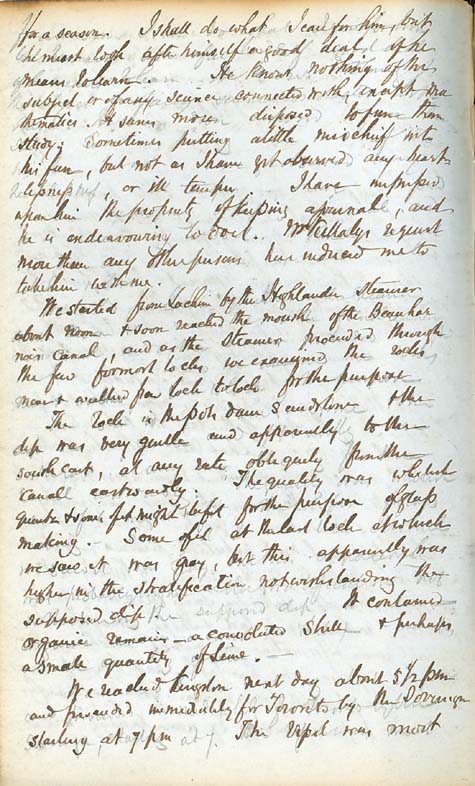 for a season. I shall do what I can for him, but
he must look after himself a good deal if he
means to learn. He knows nothing of the
subject or of any science connected with, except ma
thematics & seems more disposed to fun than
study. Sometimes putting a little mischief into
his fun, but not as I have yet observed any heart
lessness, or ill temper I have impressed
upon him the propriety of keeping a journal, and
he is endeavouring to do it. request
more than any other persons has induced me to
take him with me.
We started from Lachine by the Highlander Steamer
about noon & soon reached the mouth of the Beauhar
nois Canal, and as the Steamer proceeded through
the few foremost locks, we examined the rocks
near & walked from lock to lock for the purpose
The rock is the Potsdam Sandstone & the
dip was very gentle and apparently to the
south east, at any rate obliquely from the
canal eastwardly. The quality was whitish
quartz & some of it might be fit for the purpose of glass
making. Some of it at the last lock at which
we saw it was gray, but this apparently was
higher in the stratification notwithstanding the
supposed dip It contained
organic remains — a convoluted shell & perhaps
a small quantity of lime. —
We reached Kingston next day about 5 1/2 pm
and proceeded immediately for Toronto by the Sovereign
starting at 7 pm The Vessel was most